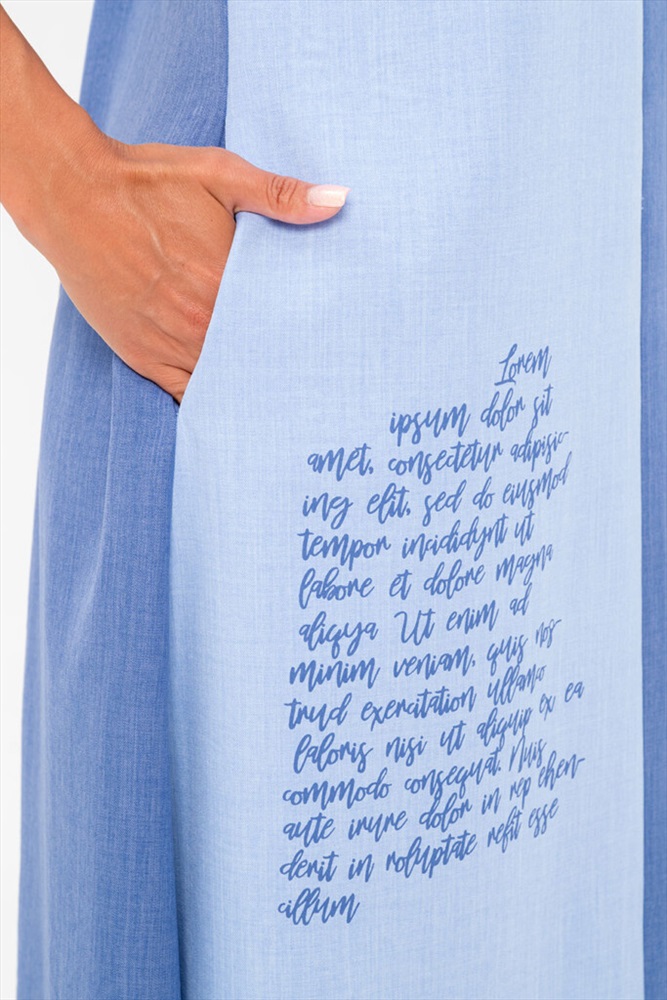 Lorem
ipsum dolor sit
amet, consectetur adipisic-
ing elit, sed do eiusmod
tempor incididynt ut
labore et dolore magna
aliqya Ut enim ad
minim veniam, quis nos-
trud exercitation ullamo
laloris nisi ut aliquip ex ea
commodo consequat. Nuis
aute irure dolor in rep ehen-
derit in roluptate refit esse
cillum